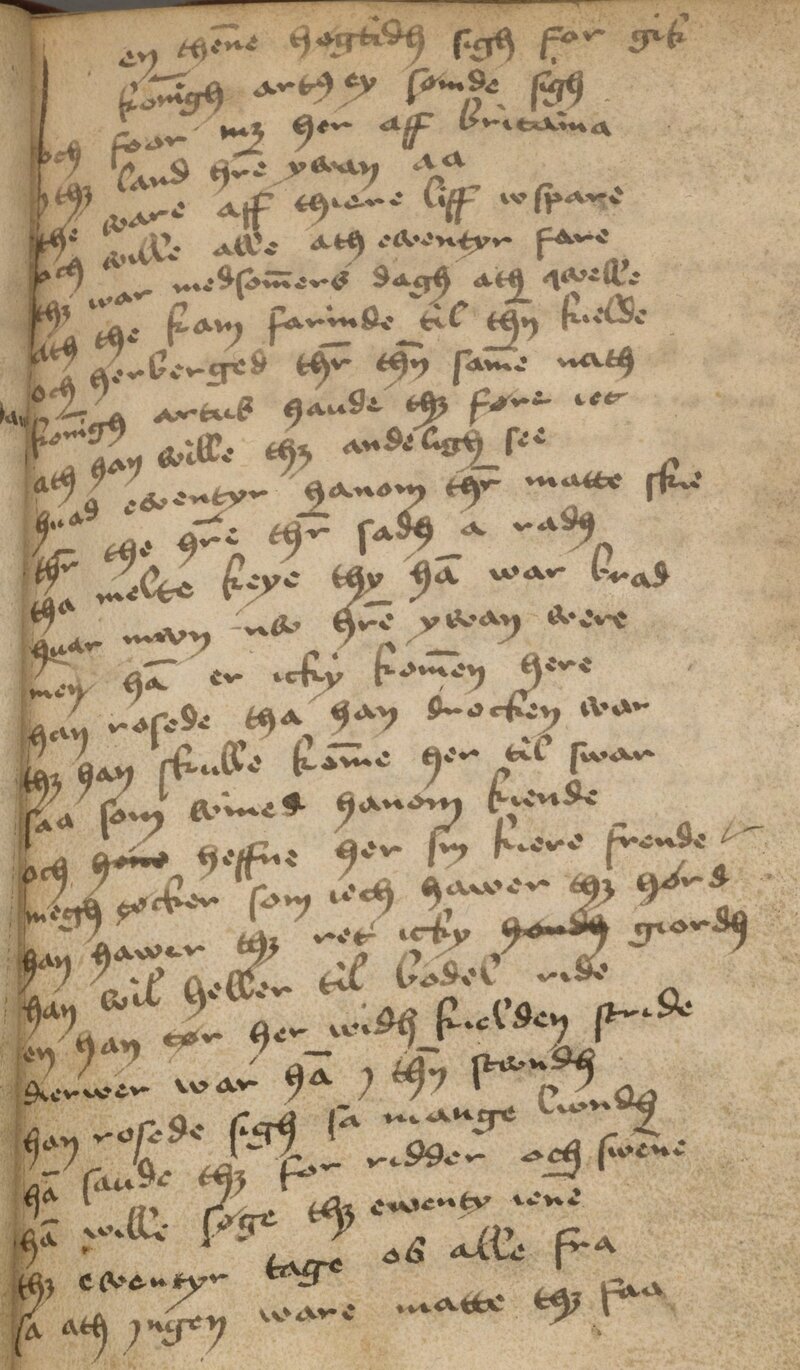 en then̄e høgtidh sigh for gik
kon̄igh artꝰ ey sømde sigh
och foor mꝫ her aff britania
ÿ thꝫ land hr̄e ywan aa
the ware aff thiere liff wspare
och wille alle ath ewentyr fare
thꝫ war medsom̄ers dagh ath qwelle
ath the kam farinde til thn̄ kielde
och herberged thr̄ thn̄ sam̄e nath
kon̄igh artus haude thꝫ føre iet
ath han wille thꝫ andeligh see
huad ewentyr hanom thr̄ matte skie
thr̄ the hr̄e thr̄ sadh a radh
tha melte keye thy hā war brad
huar mwn nw hr̄e ywan were
men hā er icky kom̄en here
han rosede tha han drocken war
thꝫ han skulle kom̄e her til swar
saa som wined hanom kiende
och hane heffne her sin kiere frende
megh tøcker som iech hawer thꝫ hørd
han hawer thꝫ ret icky hondh giordh
han wil heller til bodel ride
en han tør her widh kielden stride
dierwer war hā ÿ thn̄ stwndh
han rosede sigh sa mange lwndh
hā saude thꝫ for ridder och swen̄e
hā wille søge thꝫ ewenty ien̄e
thꝫ ewentyr tage os alle fra
sa ath ingen ware matte thꝫ faa